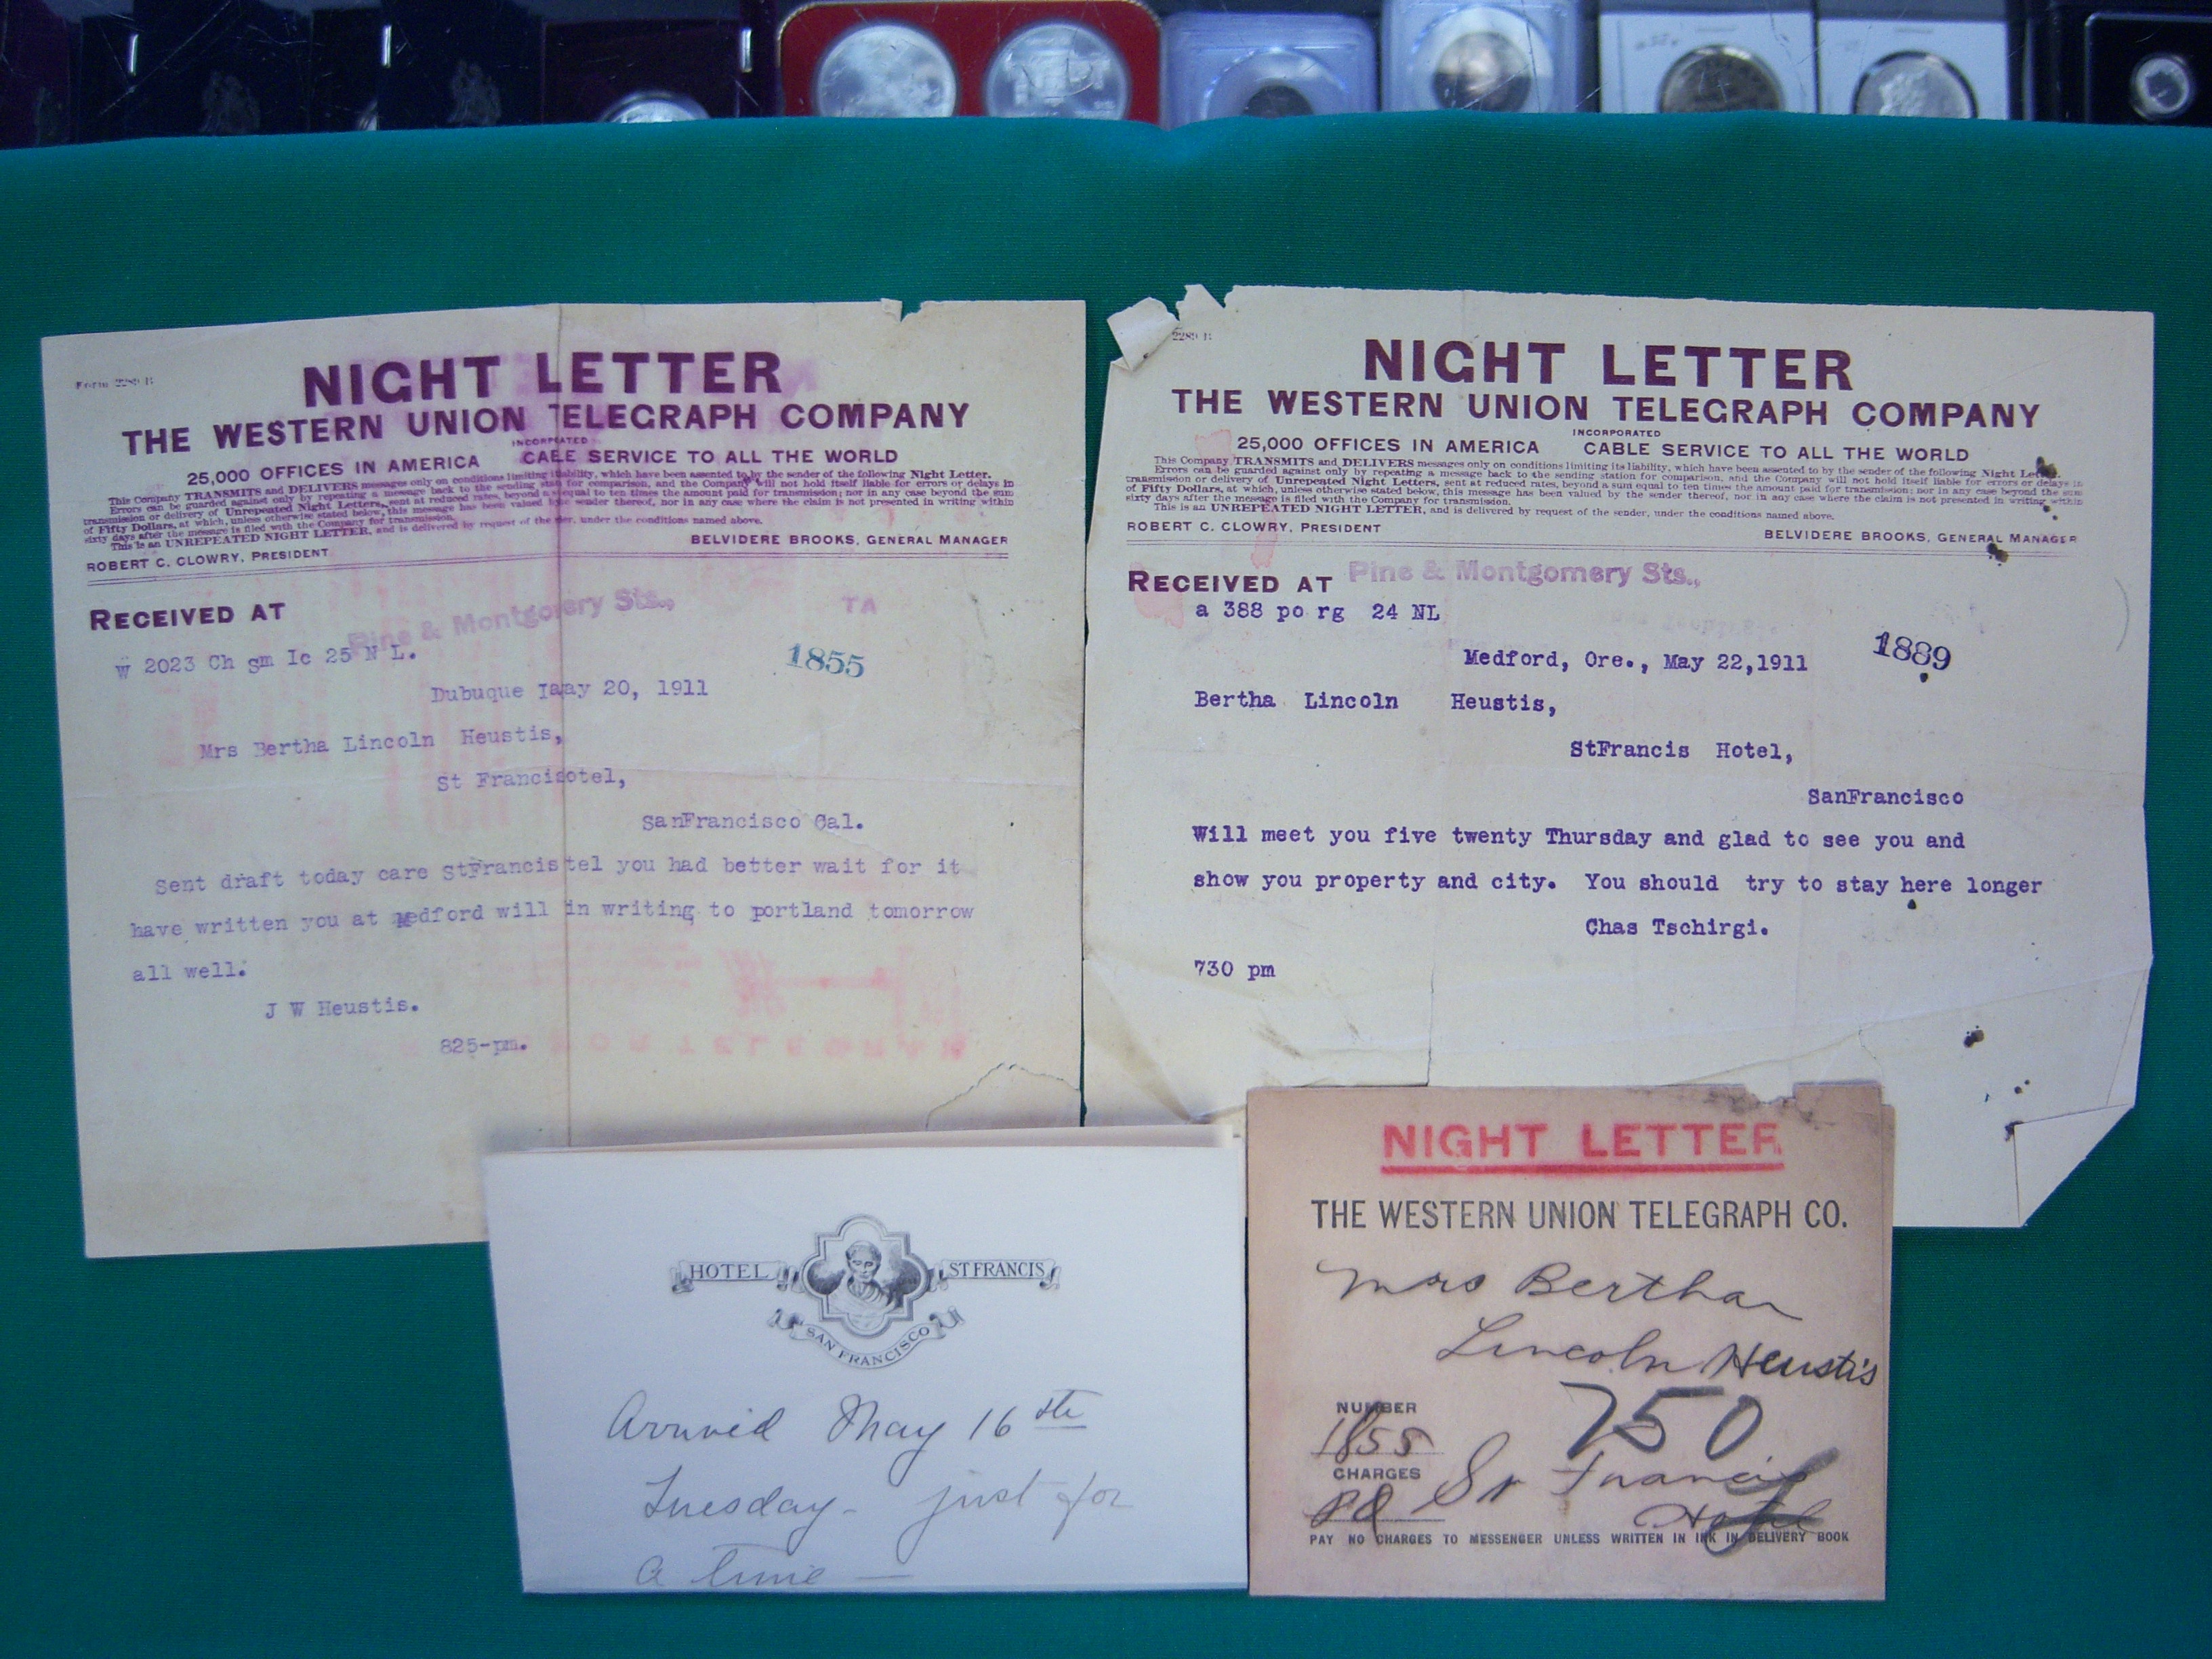 Form 2289 B
NIGHT LETTER
THE WESTERN UNION TELEGRAPH COMPANY
INCORPORATED
25,000 OFFICES IN AMERICA CABLE SERVICE TO ALL THE WORLD
This Company TRANSMITS and DELIVERS messages only on conditions limiting its liability, which have been assented to by the sender of the following Night Letter.
Errors can be guarded against only by repeating a message back to the sending station for comparison, and the Company will not hold itself liable for errors or delays in
transmission or delivery of Unrepeated Night Letters, sent at reduced rates, beyond a sum equal to ten times the amount paid for transmission; nor in any case beyond the sum
of Fifty Dollars, at which, unless otherwise stated below, this message has been valued by the sender thereof, nor in any case where the claim is not presented in writing within
sixty days after the message is filed with the Company for transmission.
This is an UNREPEATED NIGHT LETTER, and is delivered by request of the sender, under the conditions named above.
ROBERT C. CLOWRY, PRESIDENT BELVIDERE BROOKS, GENERAL MANAGER
RECEIVED AT Pine & Montgomery Sts., TA
W 2023 Ch Sm Ic 25 N L.
1855
Dubuque Iaay 20, 1911
Mrs Bertha Lincoln Heustis,
St Francisotel,
SanFrancisco Cal.
Sent draft today care StFrancistel you had better wait for it
have written you at medford will in writing to portland tomorrow
all well.
J W Heustis.
825-pm.
2289 B
NIGHT LETTER
THE WESTERN UNION TELEGRAPH COMPANY
INCORPORATED
25,000 OFFICES IN AMERICA CABLE SERVICE TO ALL THE WORLD
This Company TRANSMITS and DELIVERS messages only on conditions limiting its liability, which have been assented to by the sender of the following Night Letter.
Errors can be guarded against only by repeating a message back to the sending station for comparison, and the Company will not hold itself liable for errors or delays in
transmission or delivery of Unrepeated Night Letters, sent at reduced rates, beyond a sum equal to ten times the amount paid for transmission; nor in any case beyond the sum
of Fifty Dollars, at which, unless otherwise stated below, this message has been valued by the sender thereof, nor in any case where the claim is not presented in writing within
sixty days after the message is filed with the Company for transmission.
This is an UNREPEATED NIGHT LETTER, and is delivered by request of the sender, under the conditions named above.
ROBERT C. CLOWRY, PRESIDENT BELVIDERE BROOKS, GENERAL MANAGER
RECEIVED AT Pine & Montgomery Sts.,
a 388 po rg 24 NL
1889
Medford, Ore., May 22,1911
Bertha Lincoln Heustis,
StFrancis Hotel,
SanFrancisco
Will meet you five twenty Thursday and glad to see you and
show you property and city. You should try to stay here longer
Chas Tschirgi.
730 pm
HOTEL ST FRANCIS
SAN FRANCISCO
Arrived May 16th
Tuesday - just for
a time —
NIGHT LETTER
THE WESTERN UNION TELEGRAPH CO.
Mrs Bertha
Lincoln Heustis
750
NUMBER
1855
CHARGES
Pd
St Francis
Hotel
PAY NO CHARGES TO MESSENGER UNLESS WRITTEN IN INK IN DELIVERY BOOK